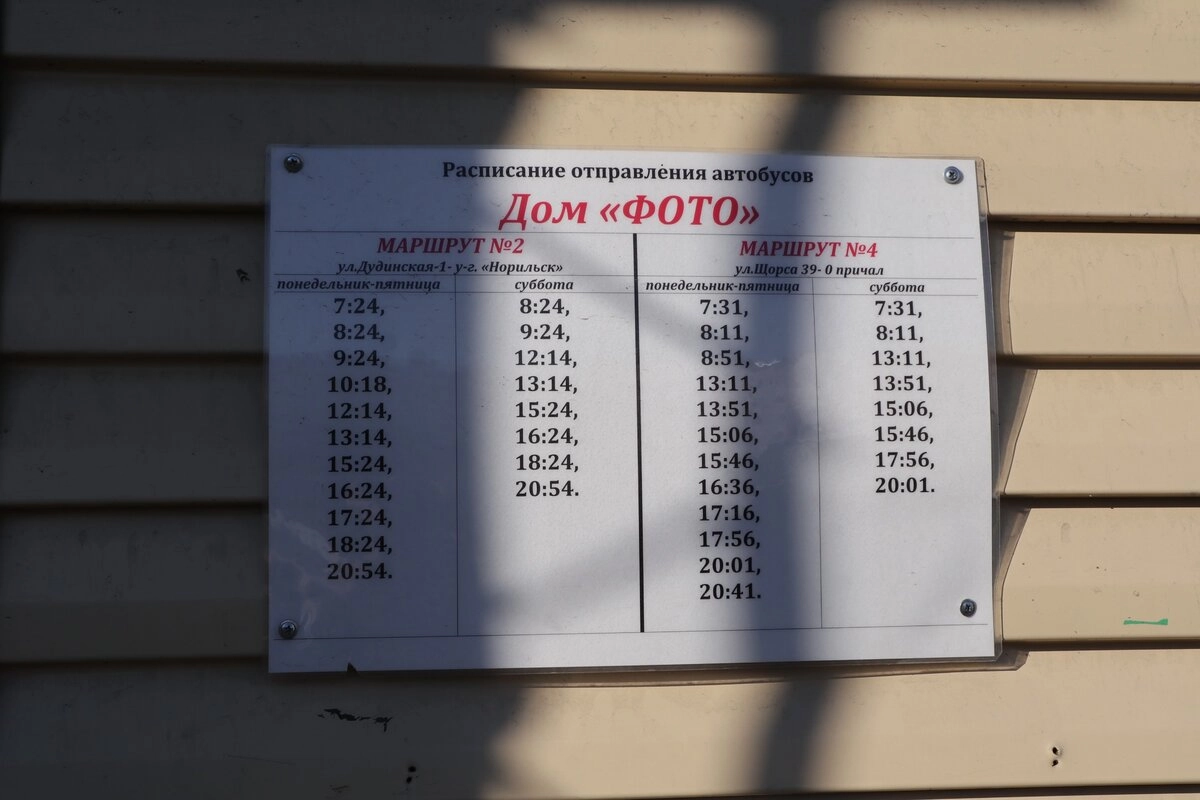 Расписание отправления автобусов
Дом «ФОТО»
МАРШРУТ №2
ул.Дудинская-1- у-г. «Норильск»
понедельник-пятница
7:24,
8:24,
9:24,
10:18,
12:14,
13:14,
15:24,
16:24,
17:24,
18:24,
20:54.
суббота
8:24,
9:24,
12:14,
13:14,
15:24,
16:24,
18:24,
20:54.
МАРШРУТ №4
ул.Щорса 39- 0 причал
понедельник-пятница
7:31,
8:11,
8:51,
13:11,
13:51,
15:06,
15:46,
16:36,
17:16,
17:56,
20:01,
20:41.
суббота
7:31,
8:11,
13:11,
13:51,
15:06,
15:46,
17:56,
20:01.